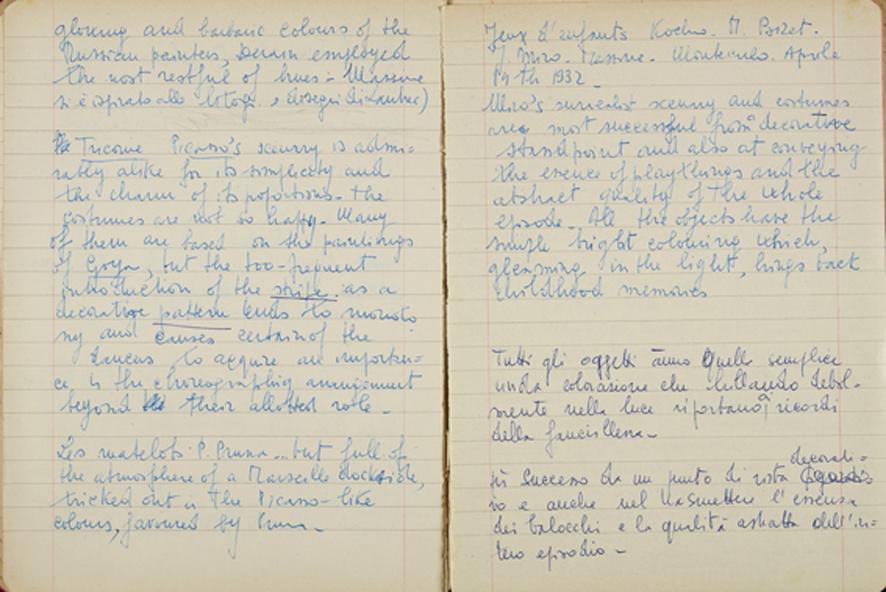 glowing and barbaric colours of the
Russian painters, Derain employed
the most restful of hues - Massine
si è ispirato alle litog. e disegni di Lautrec)
Tricorne Picasso's scenery is admi-
rably alike for its simplicity and
the charm of its poportions. the
costumes are not so happy. Many
of them are based on the paintings
of Goya, but the too-frequent
introduction of the stripe as a
decorative pattern tends to monoto
ny and causes certain of the
dancers to acquire an importan=
ce in the choreographic arrangement
beyond their allotted role -
Les matelots P. Pruna ... but full of
the atmosphere of a Marseille dockside,
tricked out in the Picasso-like
colours, favoured by Pruna -
Jeux d'enfants Kochno - M. Bizet.
J. Miro - Massine - Montecarlo. Aprile
14th 1932 -
Miro's surrealist scenery and costumes
most successful from a decorative
standpoint and also at conveying
the essence of playthings and the
abstract quality of the whole
episode - All the objects have the
simple bright colouring which,
gleaming in the light, brings back
childhood memories
Tutti gli oggetti ànno quella semplice
colorazione che brillando debol-
mente nella luce riportano i ricordi
della fanciullezza -
più successo da un punto di vista decorati=
vo e anche nel trasmettere l'essenza
dei balocchi e la qualità astratta dell'in=
tero episodio -